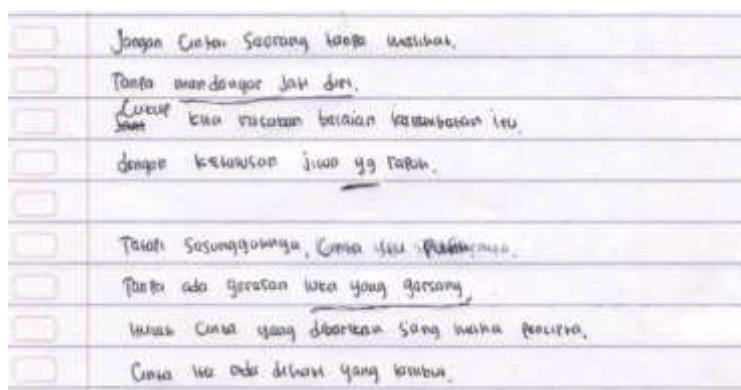 Jangan Cintai Seorang tanpa melihat.
Tanpa mendengar Jati diri.
Cukup kita rasakan belaian kelembutan itu
dengan ketulusan jiwa yg rapuh.
Tetapi Sesungguhnya, Cinta itu
Tanpa ada goresan luka yang gersang,
Cinta yang diberikan Sang maha pencipta.
Cinta itu ada dihati yang lembut.